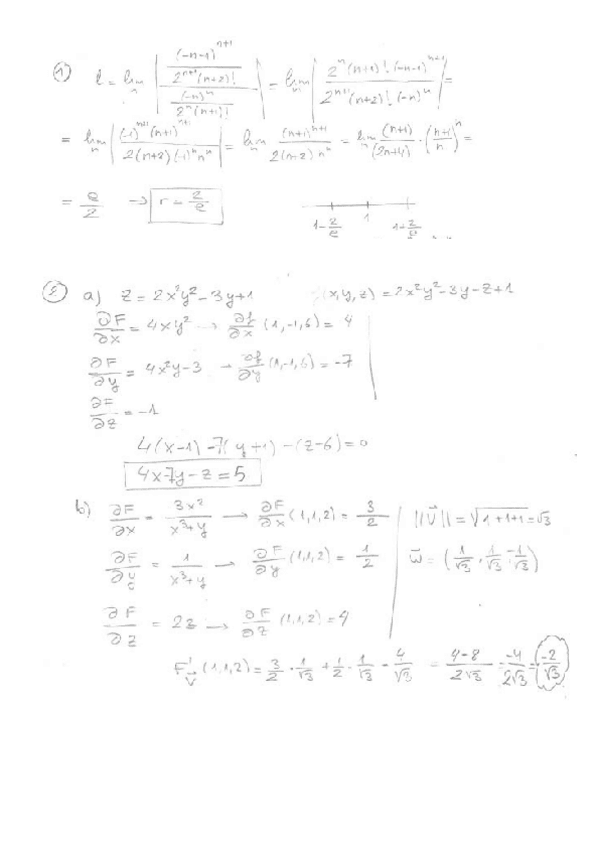 ① l = lim_n | ((-n-1)^(n+1) / (2^(n+1) (n+2)!)) / ((-n)^n / (2^n (n+1)!)) | = lim_n | (2^n (n+1)! · (-n-1)^(n+1)) / (2^(n+1) (n+2)! · (-n)^n) | =
= lim_n | ((-1)^(n+1) (n+1)^(n+1)) / (2(n+2) (-1)^n n^n) | = lim_n (n+1)^(n+1) / (2(n+2) n^n) = lim_n (n+1)/(2n+4) · ((n+1)/n)^n =
= e/2 → r = 2/e 1-2/e 1 1+2/e
② a) z = 2x²y² - 3y + 1 (x,y,z) = 2x²y² - 3y - z + 1
∂F/∂x = 4xy² → ∂f/∂x (1,-1,6) = 4
∂F/∂y = 4x²y - 3 → ∂f/∂y (1,-1,6) = -7
∂F/∂z = -1
4(x-1) - 7(y+1) - (z-6) = 0
4x-7y-z = 5
b) ∂F/∂x = 3x²/(x³+y) → ∂F/∂x (1,1,2) = 3/2 ||v⃗|| = √(1+1+1) = √3
∂F/∂y = 1/(x³+y) → ∂F/∂y (1,1,2) = 1/2 w⃗ = (1/√3, 1/√3, -1/√3)
∂F/∂z = 2z → ∂F/∂z (1,1,2) = 4
F'_v⃗ (1,1,2) = 3/2 · 1/√3 + 1/2 · 1/√3 - 4/√3 = (4-8)/(2√3) = -4/(2√3) = -2/√3